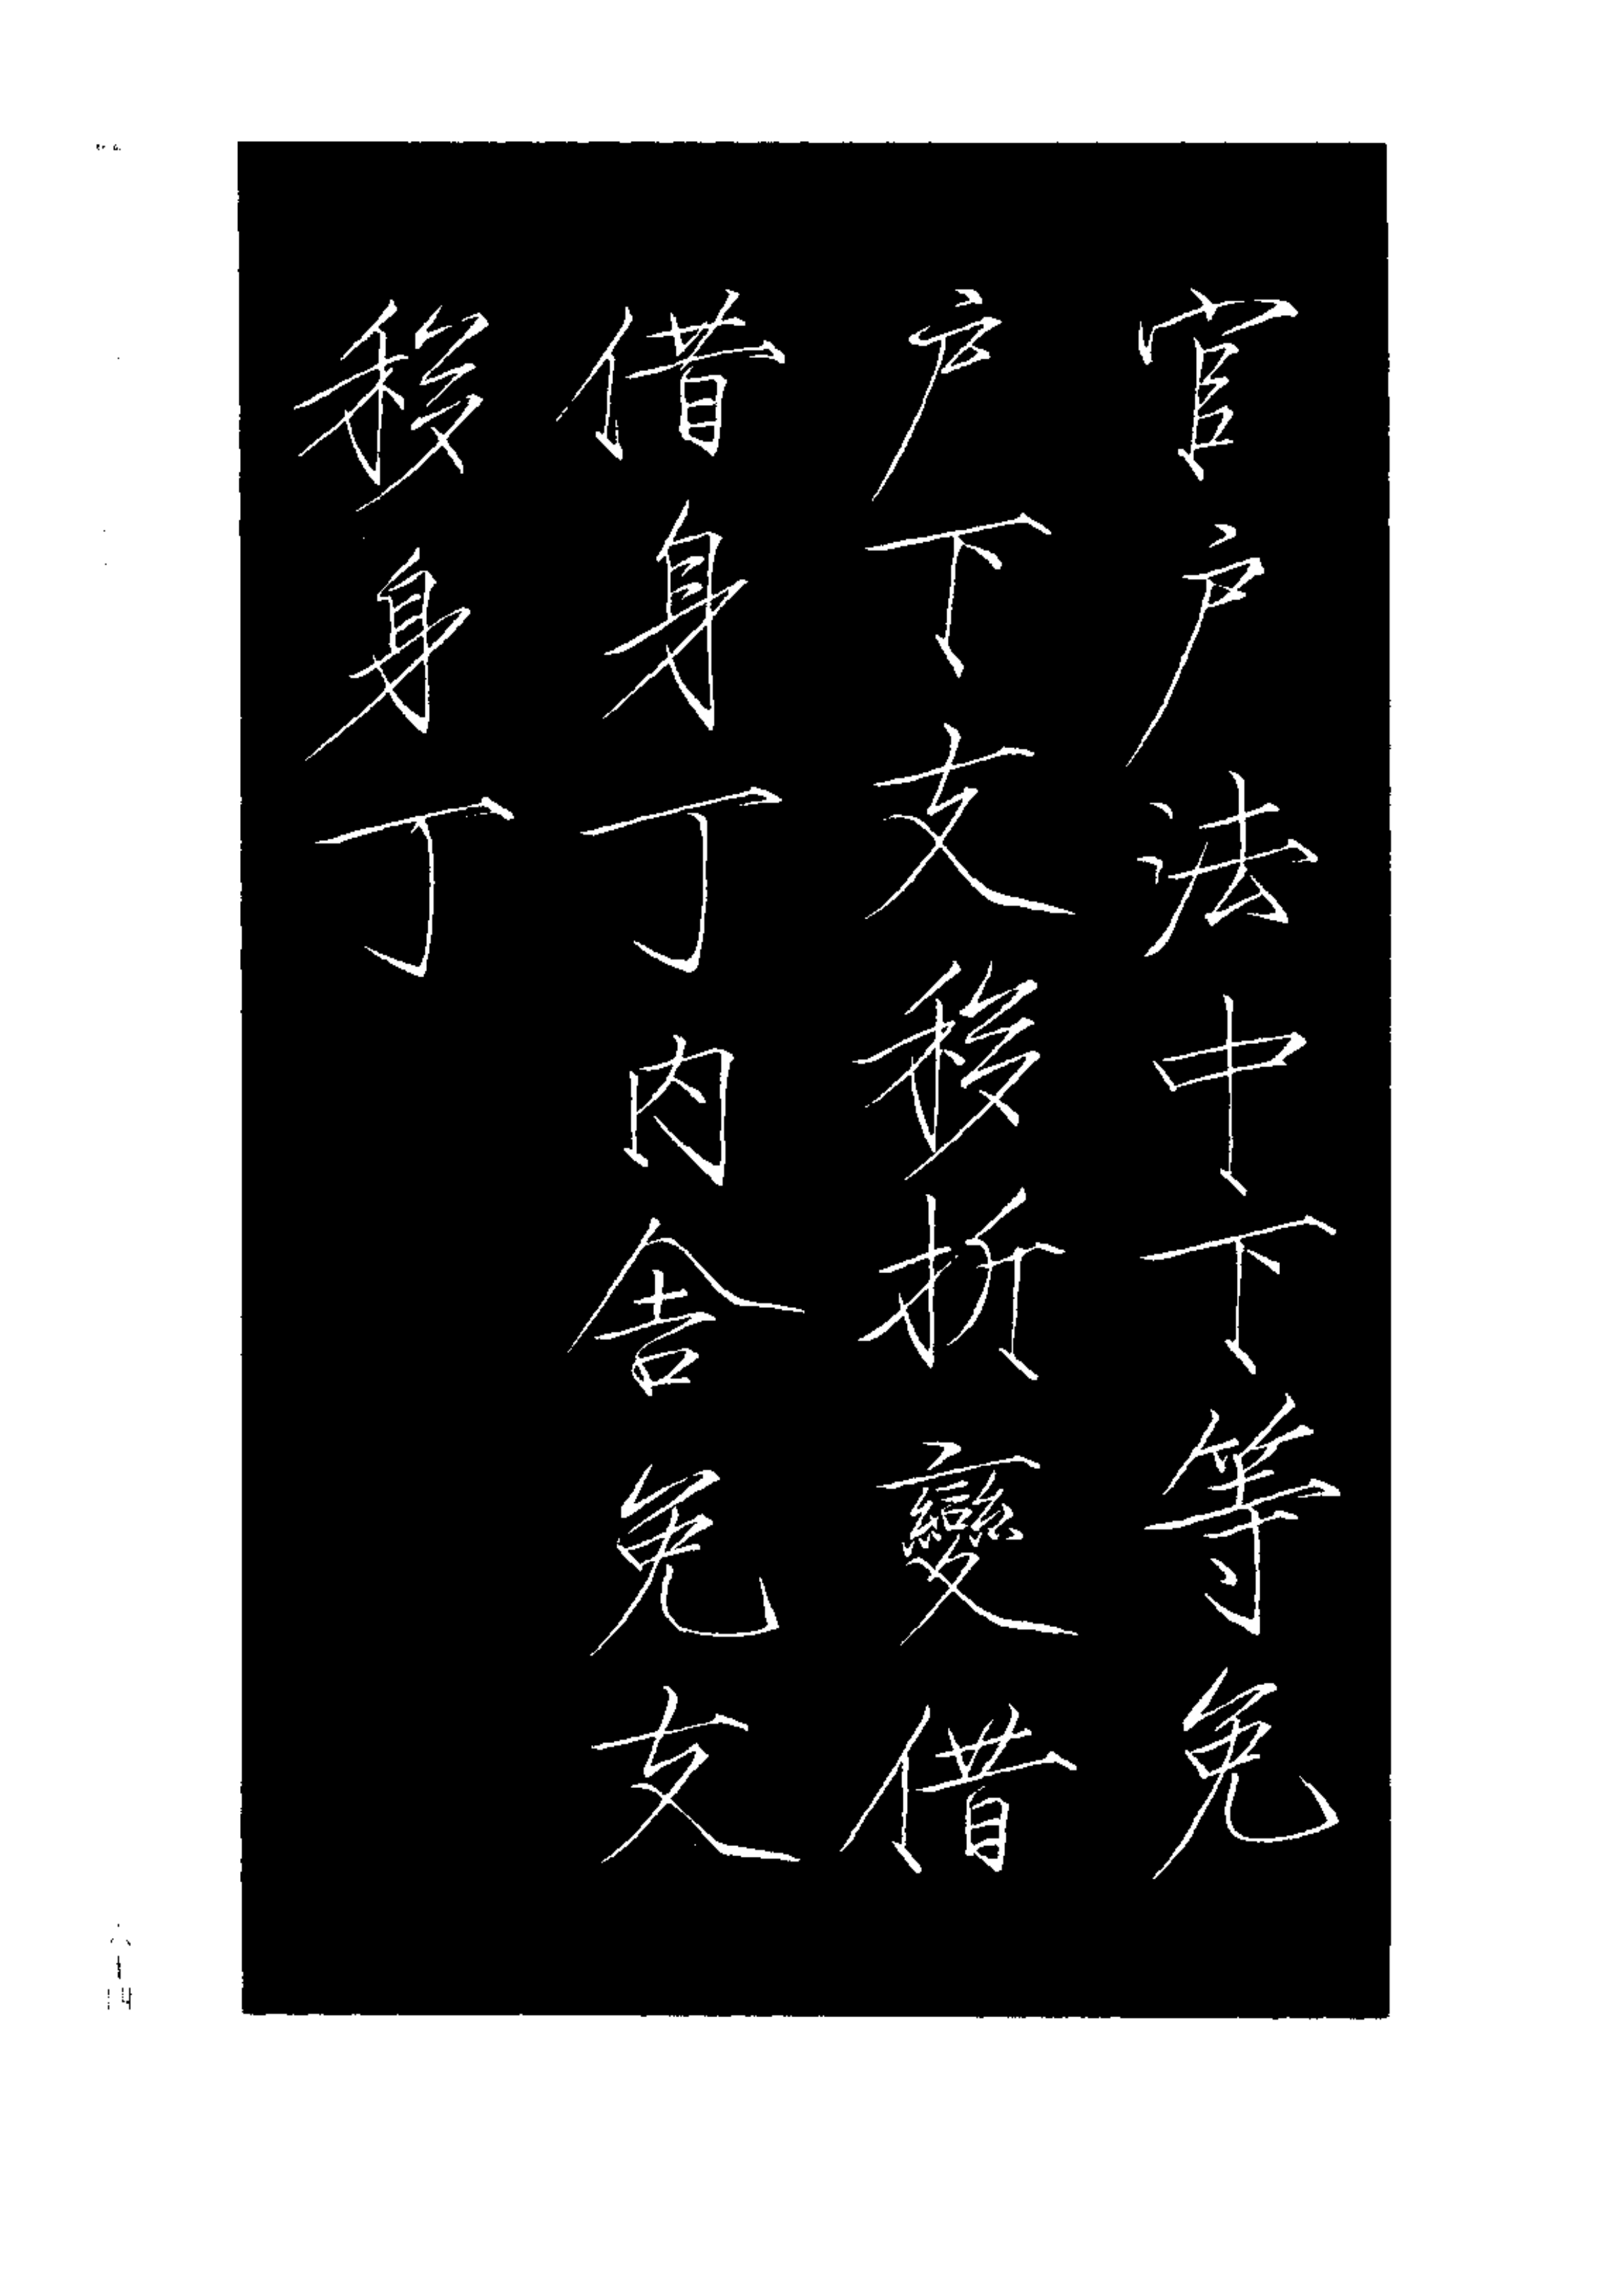 官户法中下等免
户下支移折變借
借身丁内舍免支
移身丁